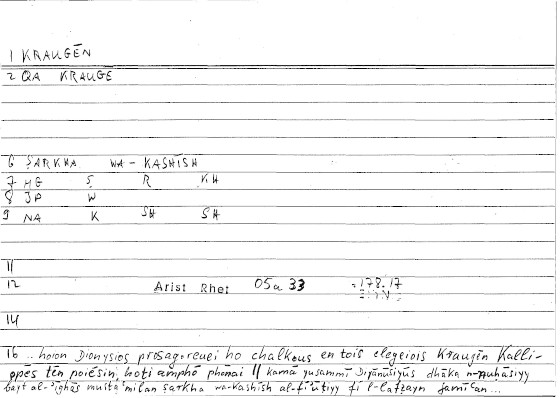 1 KRAUGĒN
2 QA KRAUGE
6 ṢARKHA WA-KASHĪSH
7 HG Ṣ R KH
8 JP W
9 NA K SH SH
11
12 Arist Rhet 05a33 =178.17
14
16 ..hoion Dionysios prosagoreuei ho chalkous en tois elegeiois Kraugēn Kalli-
opēs tēn poiēsin, hoti amphō phōnai // kamā yusammī Diyūnūsiyūs dhāka n-nuḥāsiyy
wa-Kashīsh fī l-lafẓayn jamīʿan...